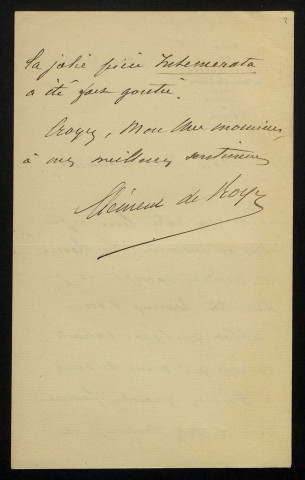 2
La jolie pièce Intemerata
a été fort goutée.
Croyez, Mon cher monsieur,
à mes meilleurs sentiments
Clément de Royer